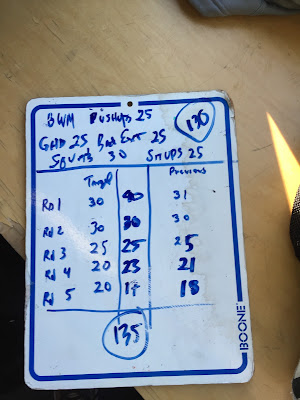 BWM PUSHUPS 25
GHD 25 EXT 25 130
SQUATS 30 SITUPS 25
Target Previous
Rd 1 30 40 31
Rd 2 30 30 30
Rd 3 25 25 25
Rd 4 20 23 21
Rd 5 20 17 18
135
BOONE